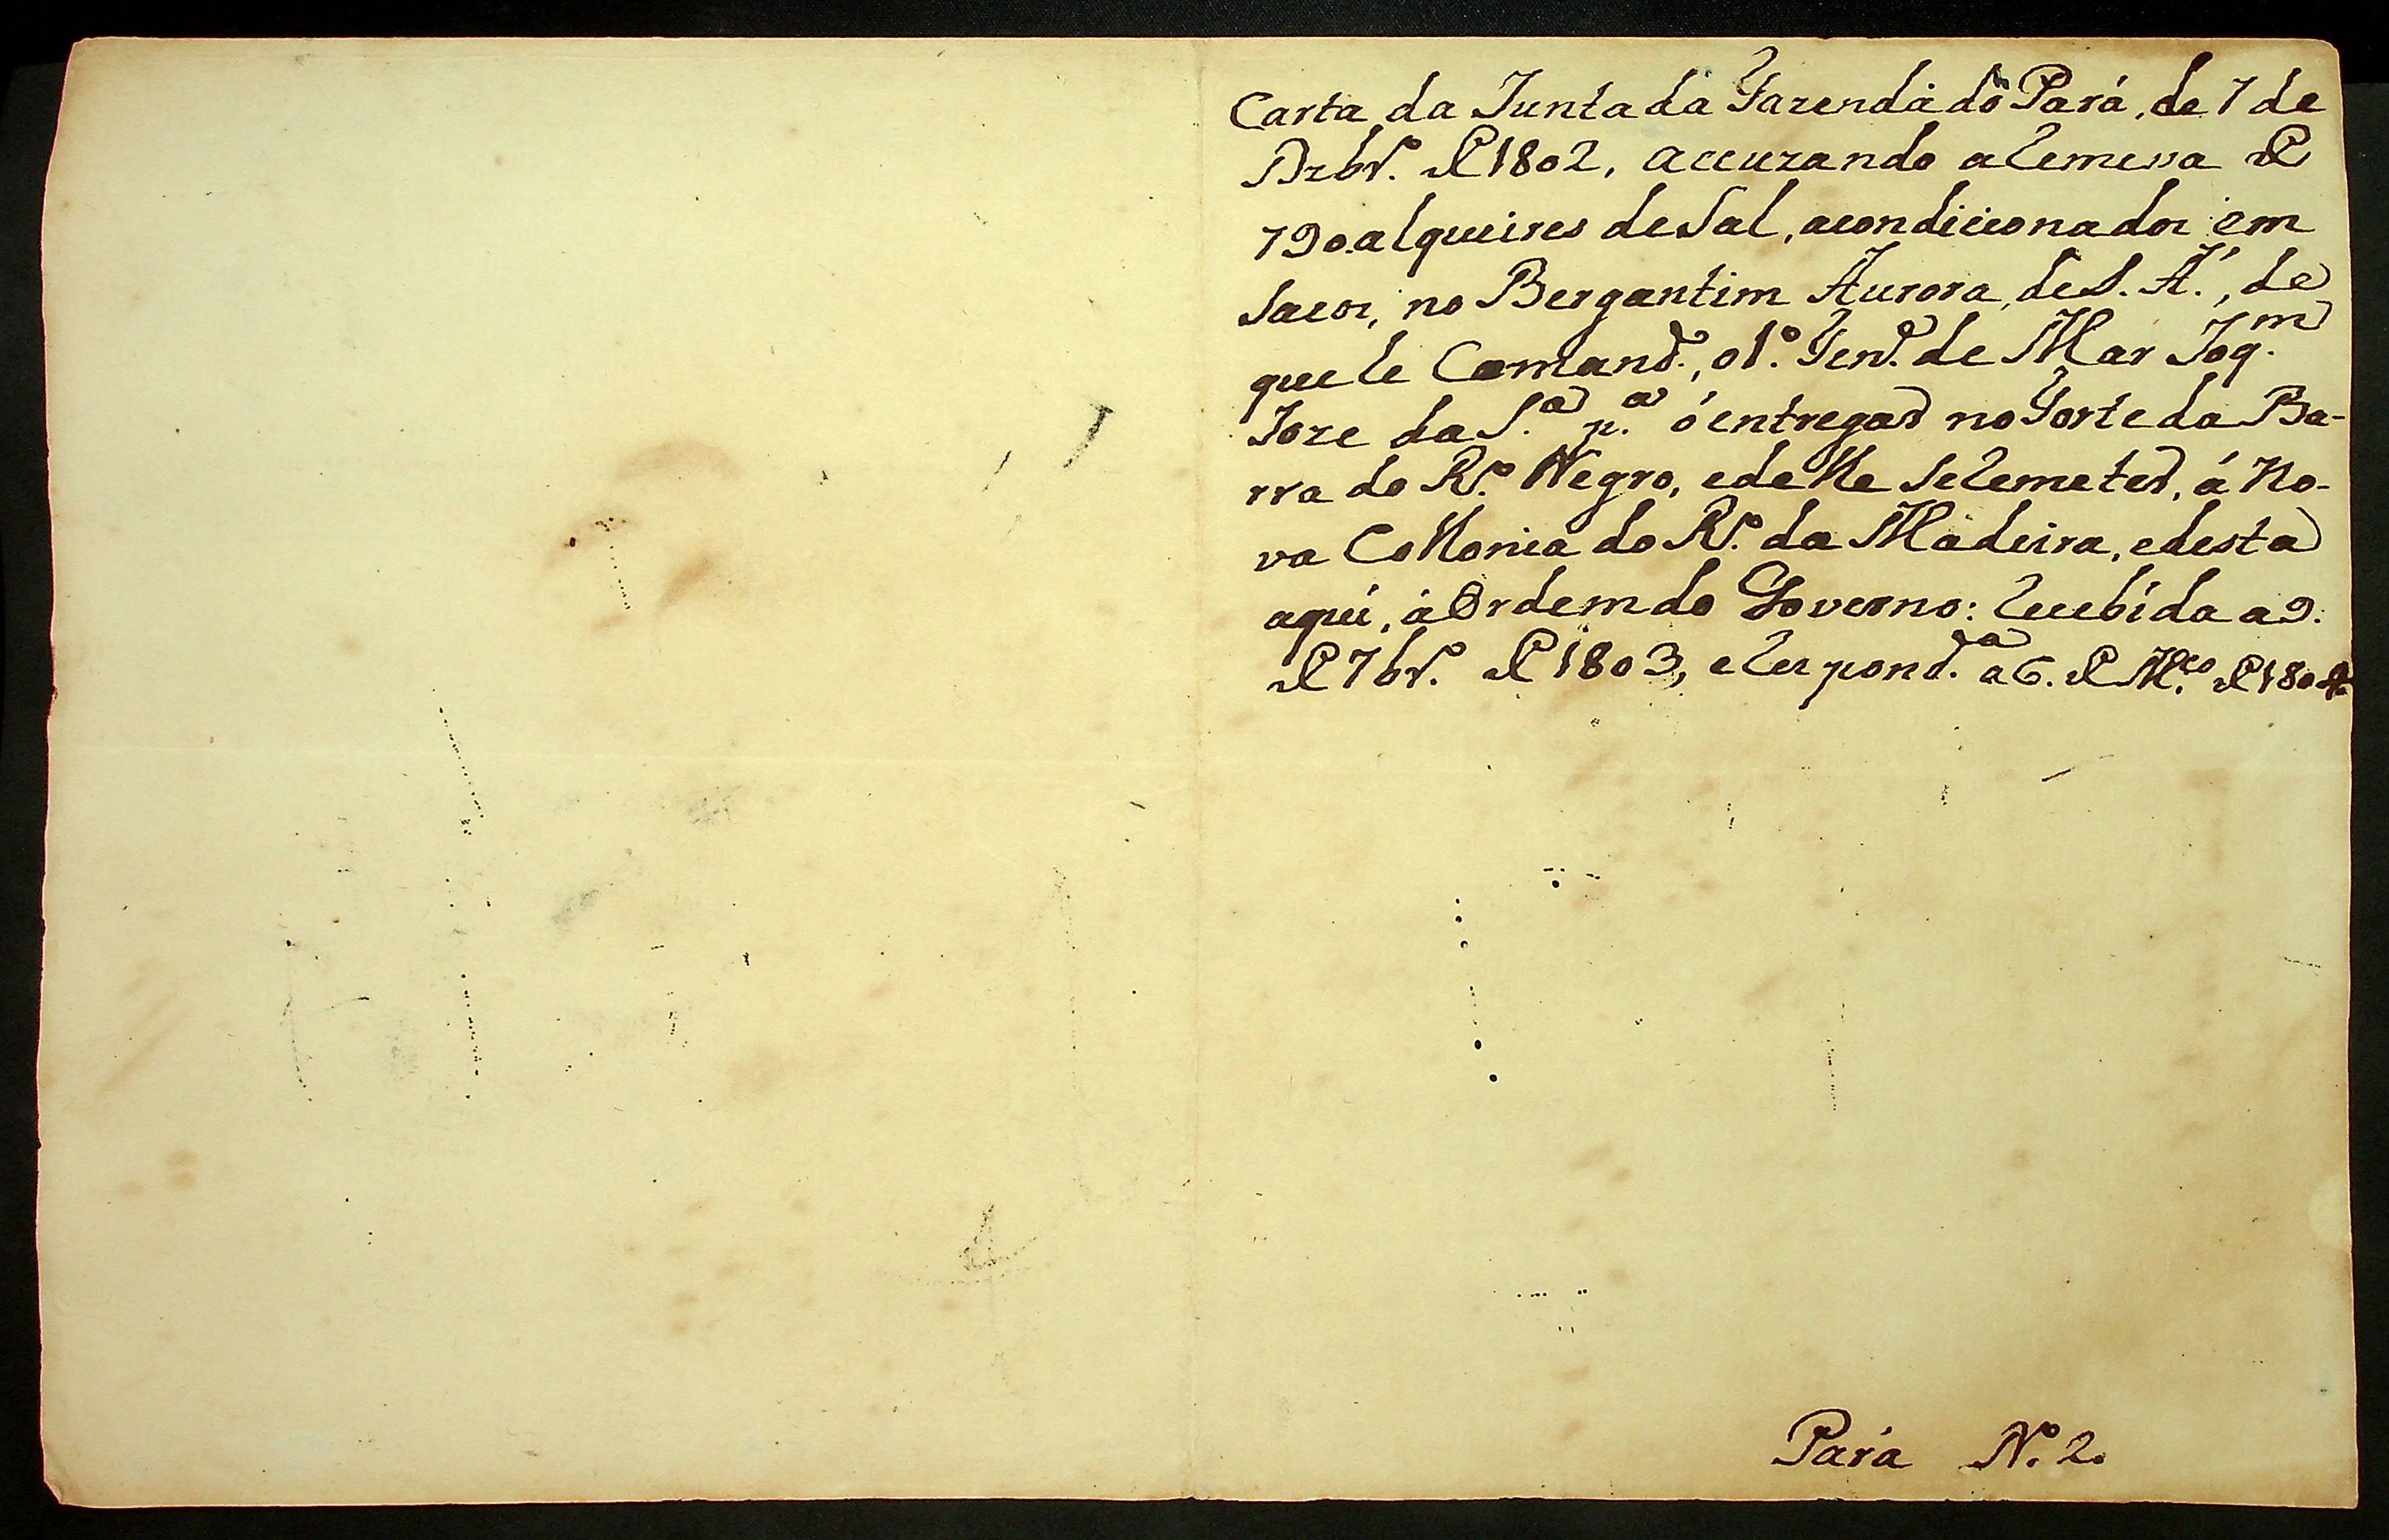 Carta da Junta da Fazenda do Pará, de 7 de
Dzbr.º de 1802, accuzando a remessa de
790 alqueires de Sal, acondicionados em
sacos, no Bergantim Aurora, de S. A., de
que he Comand.e, o 1.º Ten.e de Mar Joq.m
Joze da S.a p.a ó entregar no Forte da Ba-
rra do R.º Negro, e delle se remeter, á No-
va Collonia do R.º da Madeira, e desta
aqui, á Ordem do Governo: recebida a 9.
de 7br.º de 1803, e respond.da a 6. de M.ço de 1804.
Pará N.º 2.